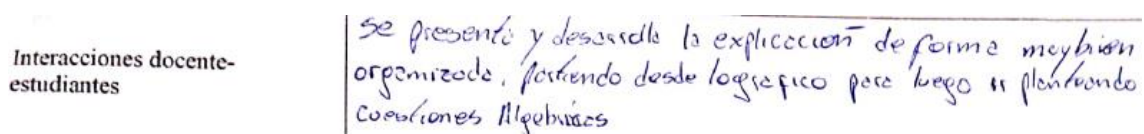 Interacciones docente-
estudiantes
se presenta y desarrolla la explicación de forma muy bien
organizada, partiendo desde lo grafico para luego ir planteando
cuestiones Algebraicas